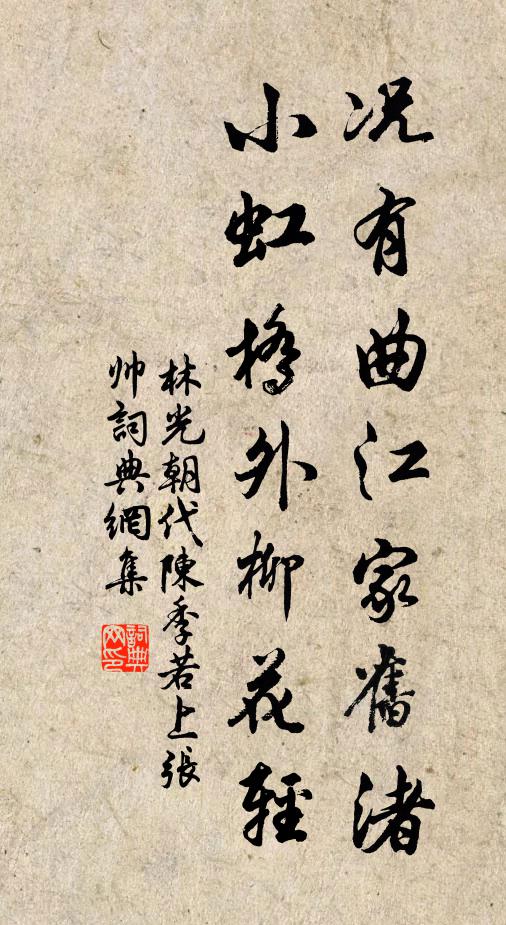 况有曲江家舊渚
小虹橋外柳花輕
林光朝代陳季若上張
帅詞典網集
詞典
网印